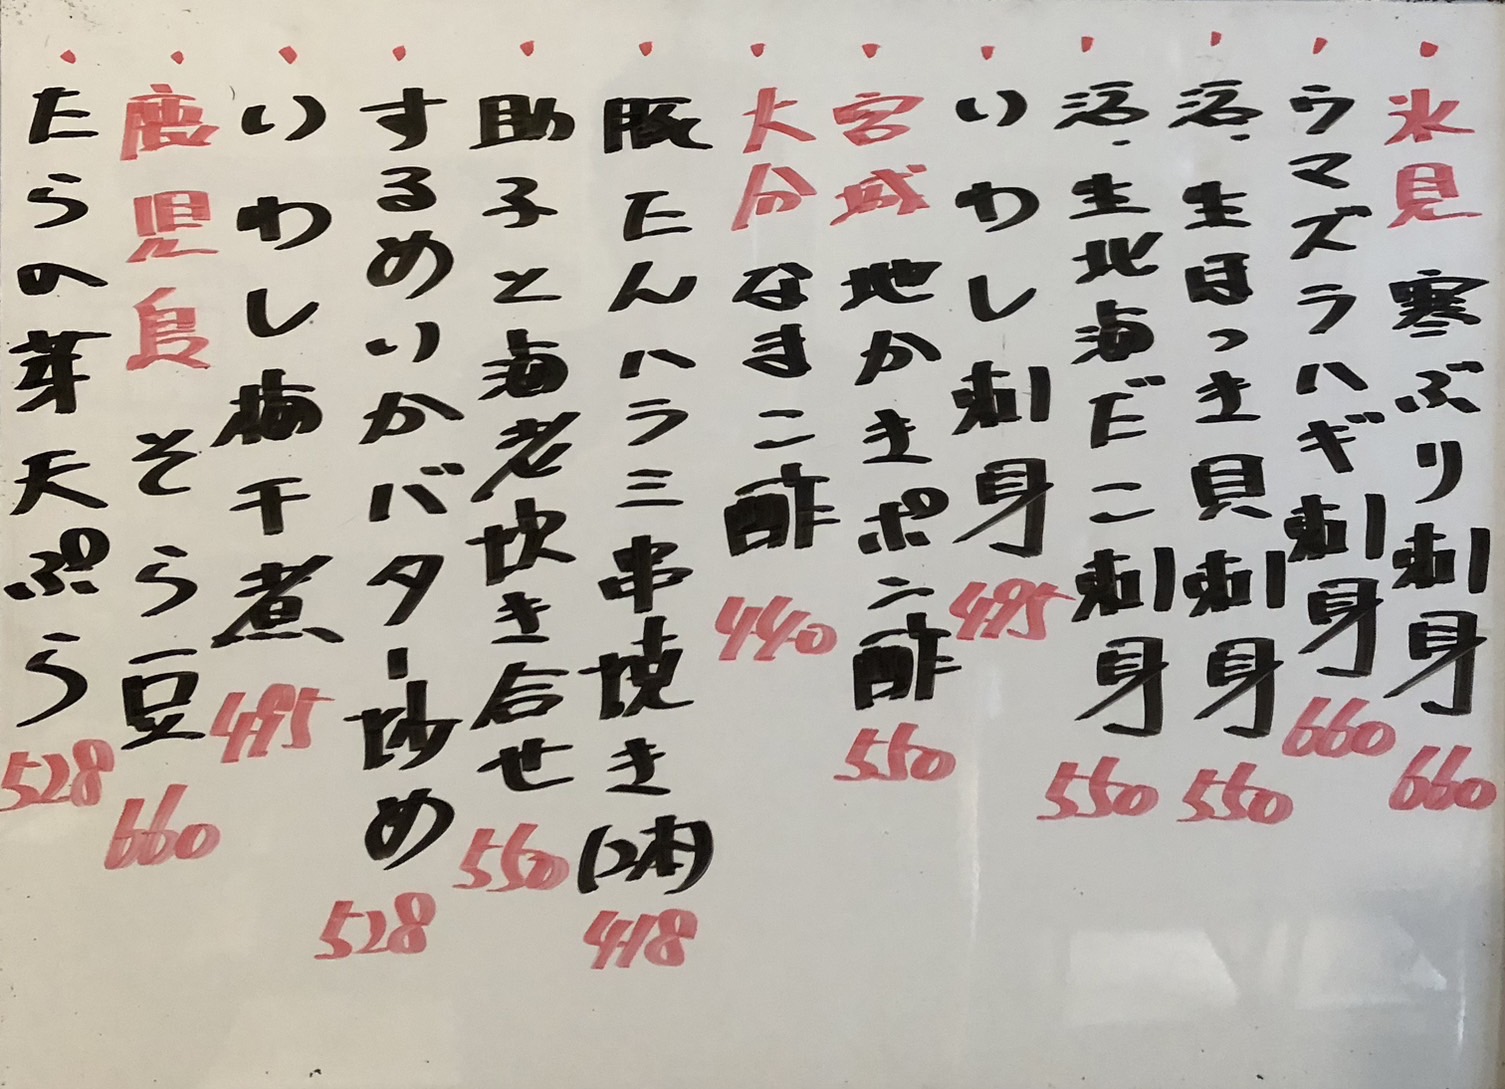 ・氷見 寒ぶり刺身 660
・ウマズラハギ刺身 660
・活・生ほっき貝刺身 550
・活・生北海だこ刺身 550
・いわし刺身 495
・宮城 地かきポン酢 550
・大分 なまこ酢 440
・豚たんハラミ串焼き(2本) 418
・助子と海老炊き合せ 550
・するめいかバター炒め 528
・いわし梅干煮 495
・鹿児島 そら豆 660
・たらの芽天ぷら 528